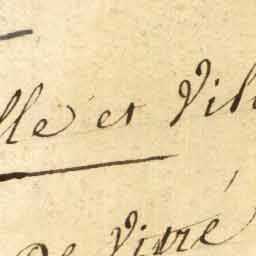 lle et Vil
de Vitré